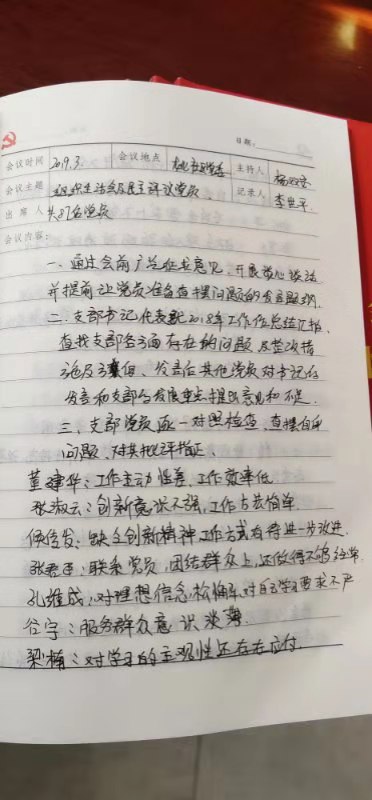 日期:
会议时间 2019.3 会议地点 主持人 杨双安
会议主题 组织生活会及民主评议党员 记录人 李世平
出席人 共87名党员
会议内容:
一、通过会前广泛征求意见、开展谈心谈话
并提前让党员准备查摆问题的发言题纲
二、支部书记代表 2018年工作作总结汇报
查找支部各方面存在的问题及整改措
施及 发言后其他党员对书记的
发言和支部的发展重点提出意见和不足.
三、支部党员逐一对照检查、查摆自身
问题、对其批评指正、
董建华:工作主动性差、工作效率低
张淑云:创新意识不强,工作方法简单.
侯传发:缺乏创新精神工作方式有待进一步改进.
张 :联系党员,团结群众上,还做得不够经常.
孔维成:对理想信念,松懈,对自己学习要求不严
谷宇:服务群众意识淡薄.
梁楠:对学习的主观性还存在应付.